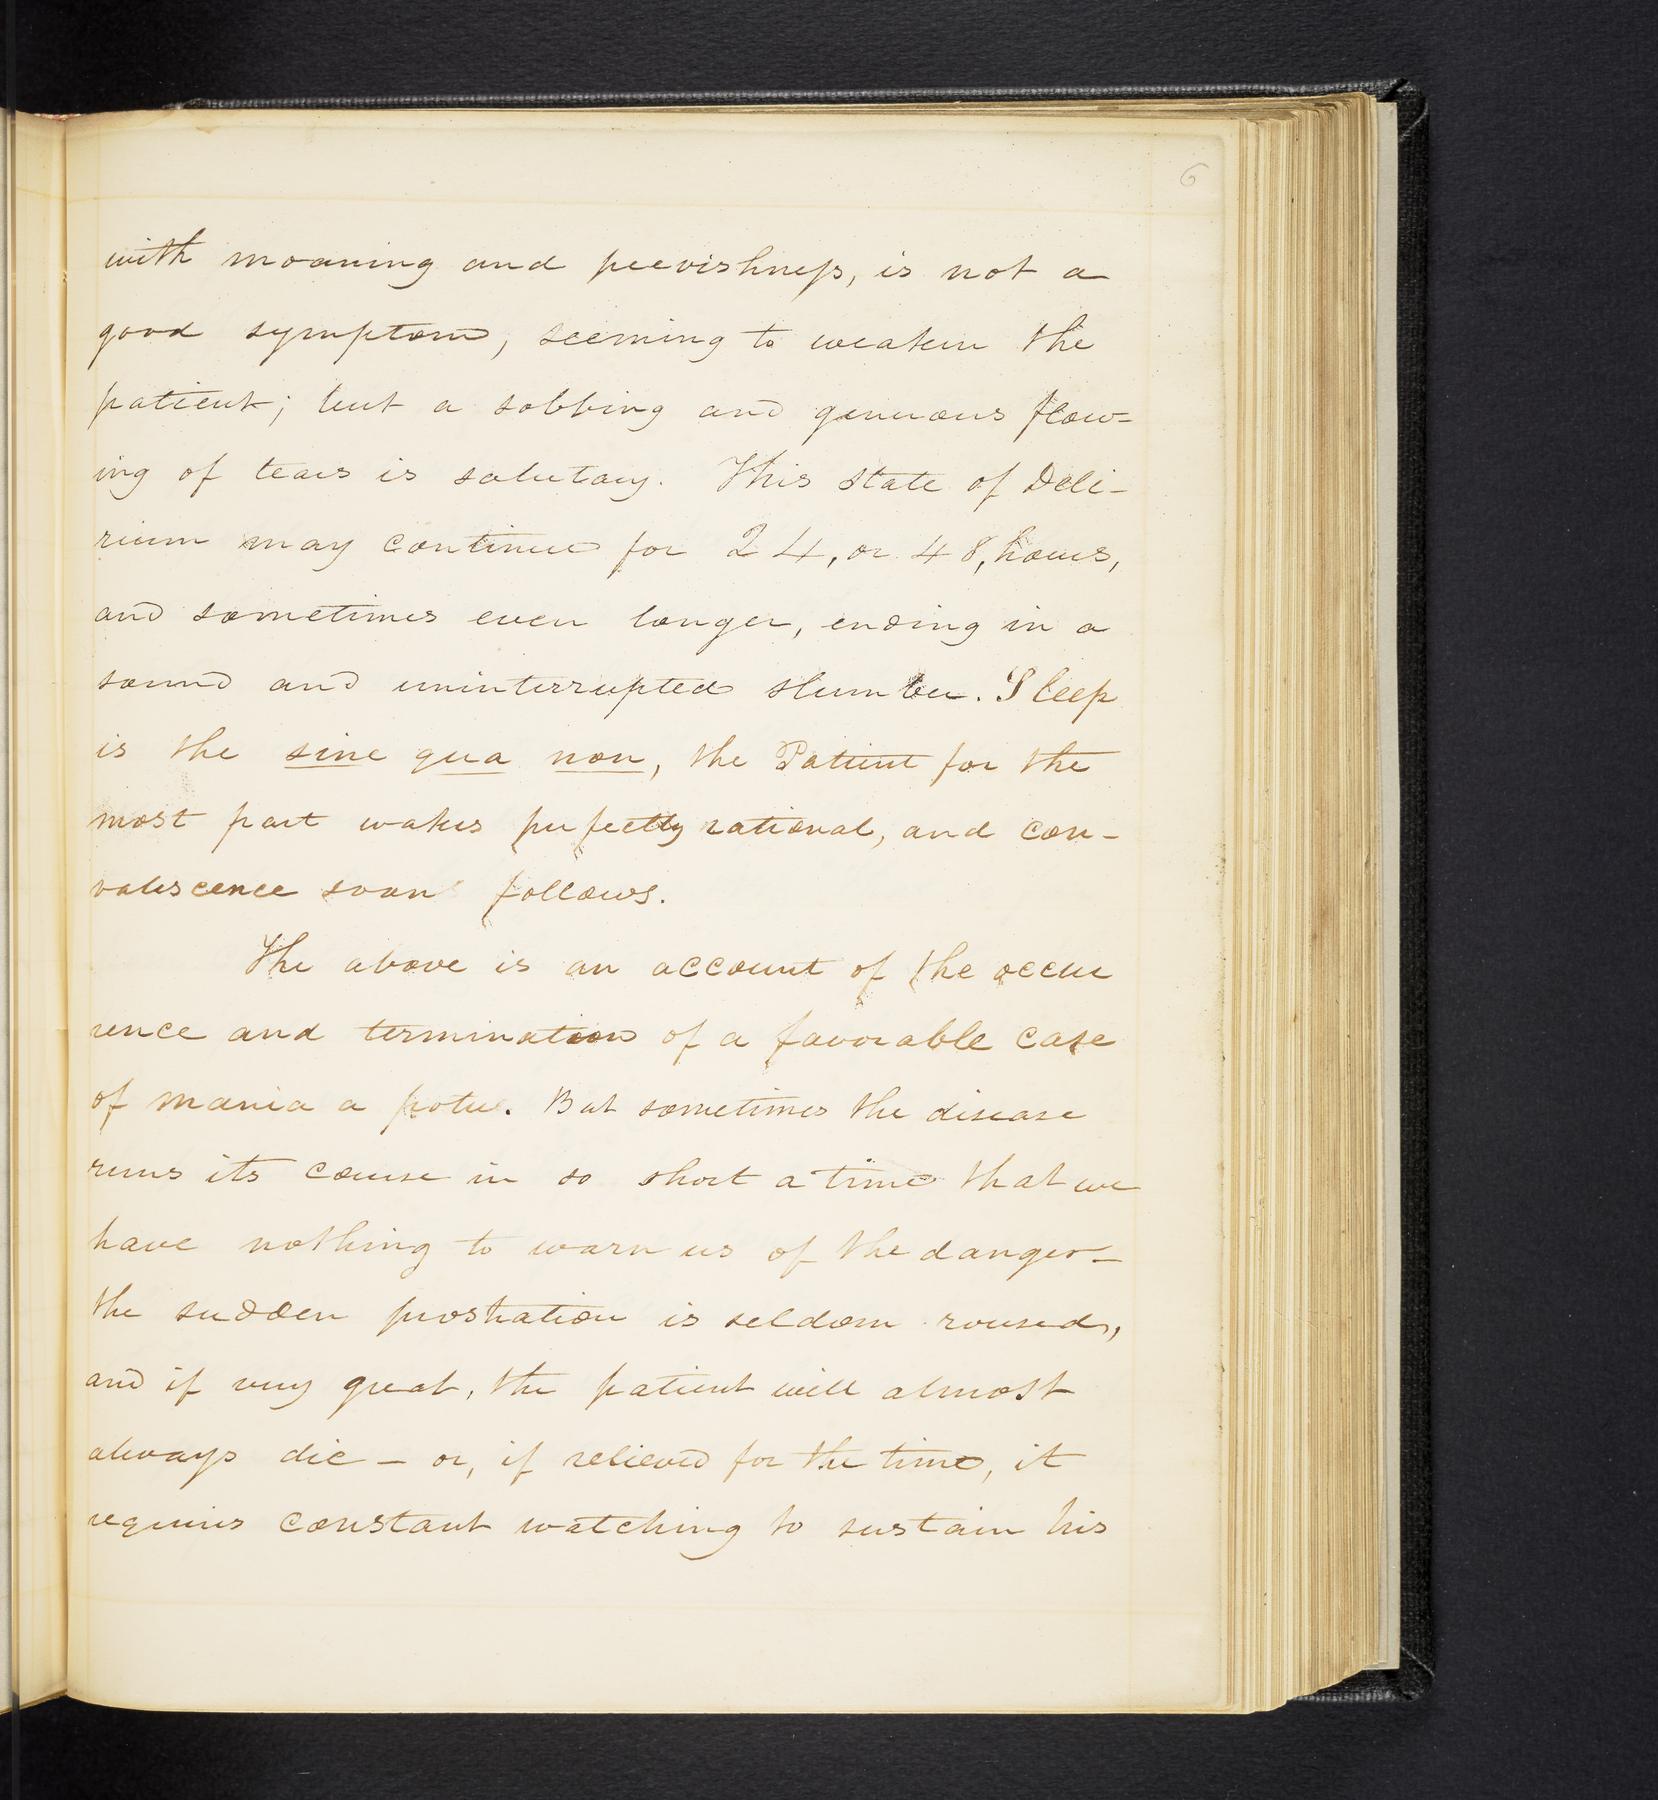 6
with moaning and peevishness, is not a
good symptom, seeming to weaken the
patient; but a sobbing and generous flow-
ing of tears is salutary. This state of Deli-
rium may continue for 24, or 48, hours,
and sometimes even longer, ending in a
sound and uninterrupted slumber. Sleep
is the sine qua non, the Patient for the
most part wakes perfectly rational, and con-
valescence soon follows.
The above is an account of the occur
rence and termination of a favorable case
of mania a potu. But sometimes the disease
runs its course in so short a time that we
have nothing to warn us of the danger—
the sudden prostration is seldom roused,
and if very great, the patient will almost
always die — or, if relieved for the time, it
requires constant watching to sustain his